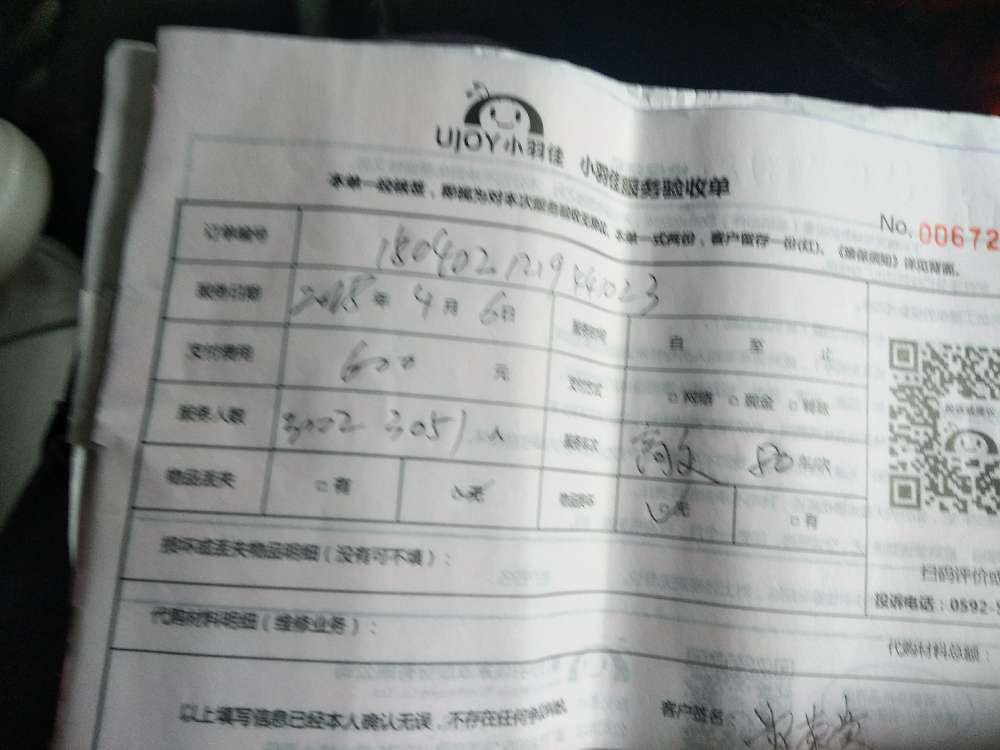 UJOY小羽佳 小羽佳服务验收单
本单一经核签,即视为对本次服务验收无异议。本单一式两份,客户留存一份(红)。《维保须知》详见背面。
No. 00672
订单编号 18040212194023
服务日期 2018年 4月 6日 服务时间 自 至 止
支付费用 600 元 支付方式 □网络 □现金 □转账
服务人数 3002 3051人 服务车次 80车/次
物品丢失 □有 无 物品损坏 □无 □有
损坏或丢失物品明细(没有可不填):
扫码评价或
投诉电话:0592-5
代购材料明细(维修业务):
代购材料总额:
以上填写信息已经本人确认无误,不存在任何争议。
客户签名: